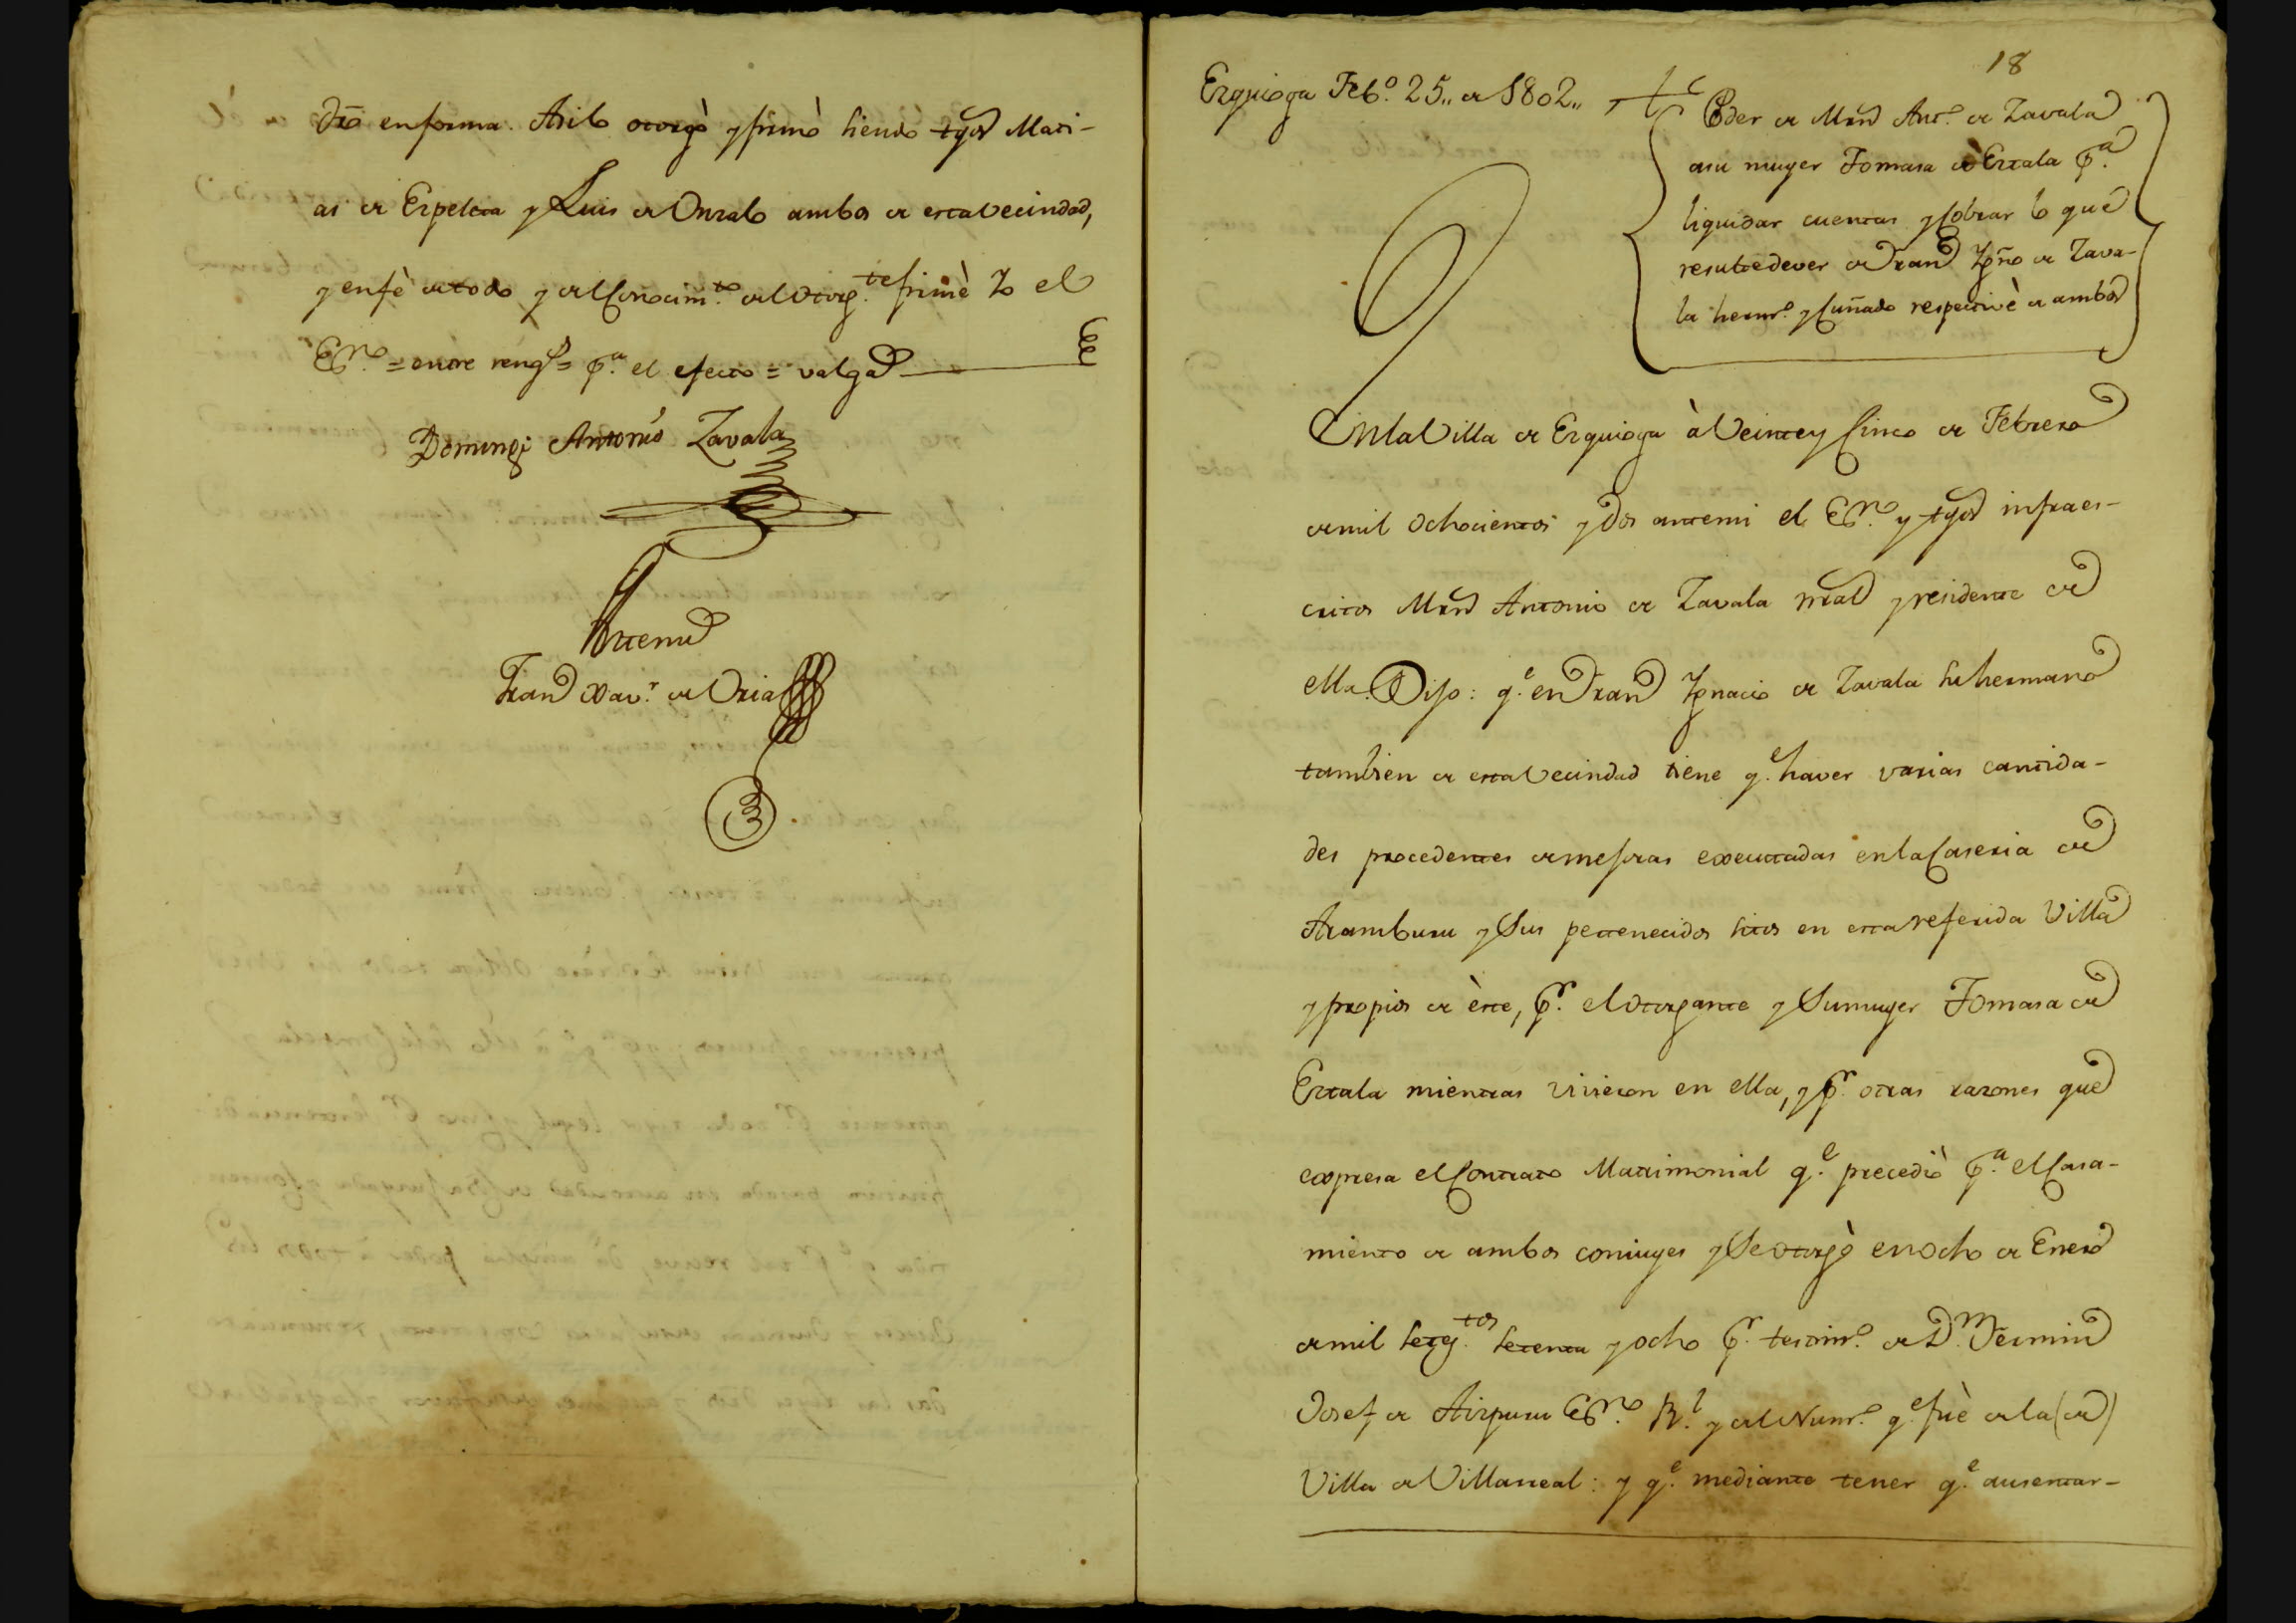 dro en forma. Asi lo otorgò y firmò siendo tgos Mati-
as de Ezpeleta y Luis de Onzalo ambos de esta vecindad,
y en fè de todo y del Conocim.to del Otorg.te firmè Yo el
Es.no = entre reng.s = p.a el efecto = valga
Domingo Antonio Zavala
Antemi
Fran.co Xav.r de Oria
18
Ezquioga Feb.o 25,, de 1802,,
Poder de Mrn Ant.o de Zavala
a su muger Tomasa de Ertala p.a
liquidar cuentas y Cobrar lo que
resulte dever de Fran.co Ygn.o de Zava-
la herm.o y Cuñado respectivè de ambos
En la Villa de Ezquioga à Veinte y Cinco de Febrero
de mil ochocientos y Dos antemi el Es.no y tgos infraes-
critos Mrn Antonio de Zavala nral y residente de
ella. Dijo: q.e en Fran.co Ygnacio de Zavala su hermano
tambien de esta Vecindad tiene q.e haver varias cantida-
des procedentes de mejoras executadas en la Caseria de
Aramburu y Sus pertenecidos sitos en esta referida Villa
y propios de èste, p.r el Otorgante y Su muger Tomasa de
Ertala mientras vivieron en ella, y p.r otras razones que
expresa el Contrato Matrimonial q.e precediò p.a el Casa-
miento de ambos coniuges y Se otorgò en ocho de Enero
de mil setez.tos setenta y ocho p.r testim.o de D.n Fermin
Josef de Aizpuru Es.no R.l y del Num.o q.e fuè de la (de)
Villa de Villarreal: y q.e mediante tener q.e ausentar-